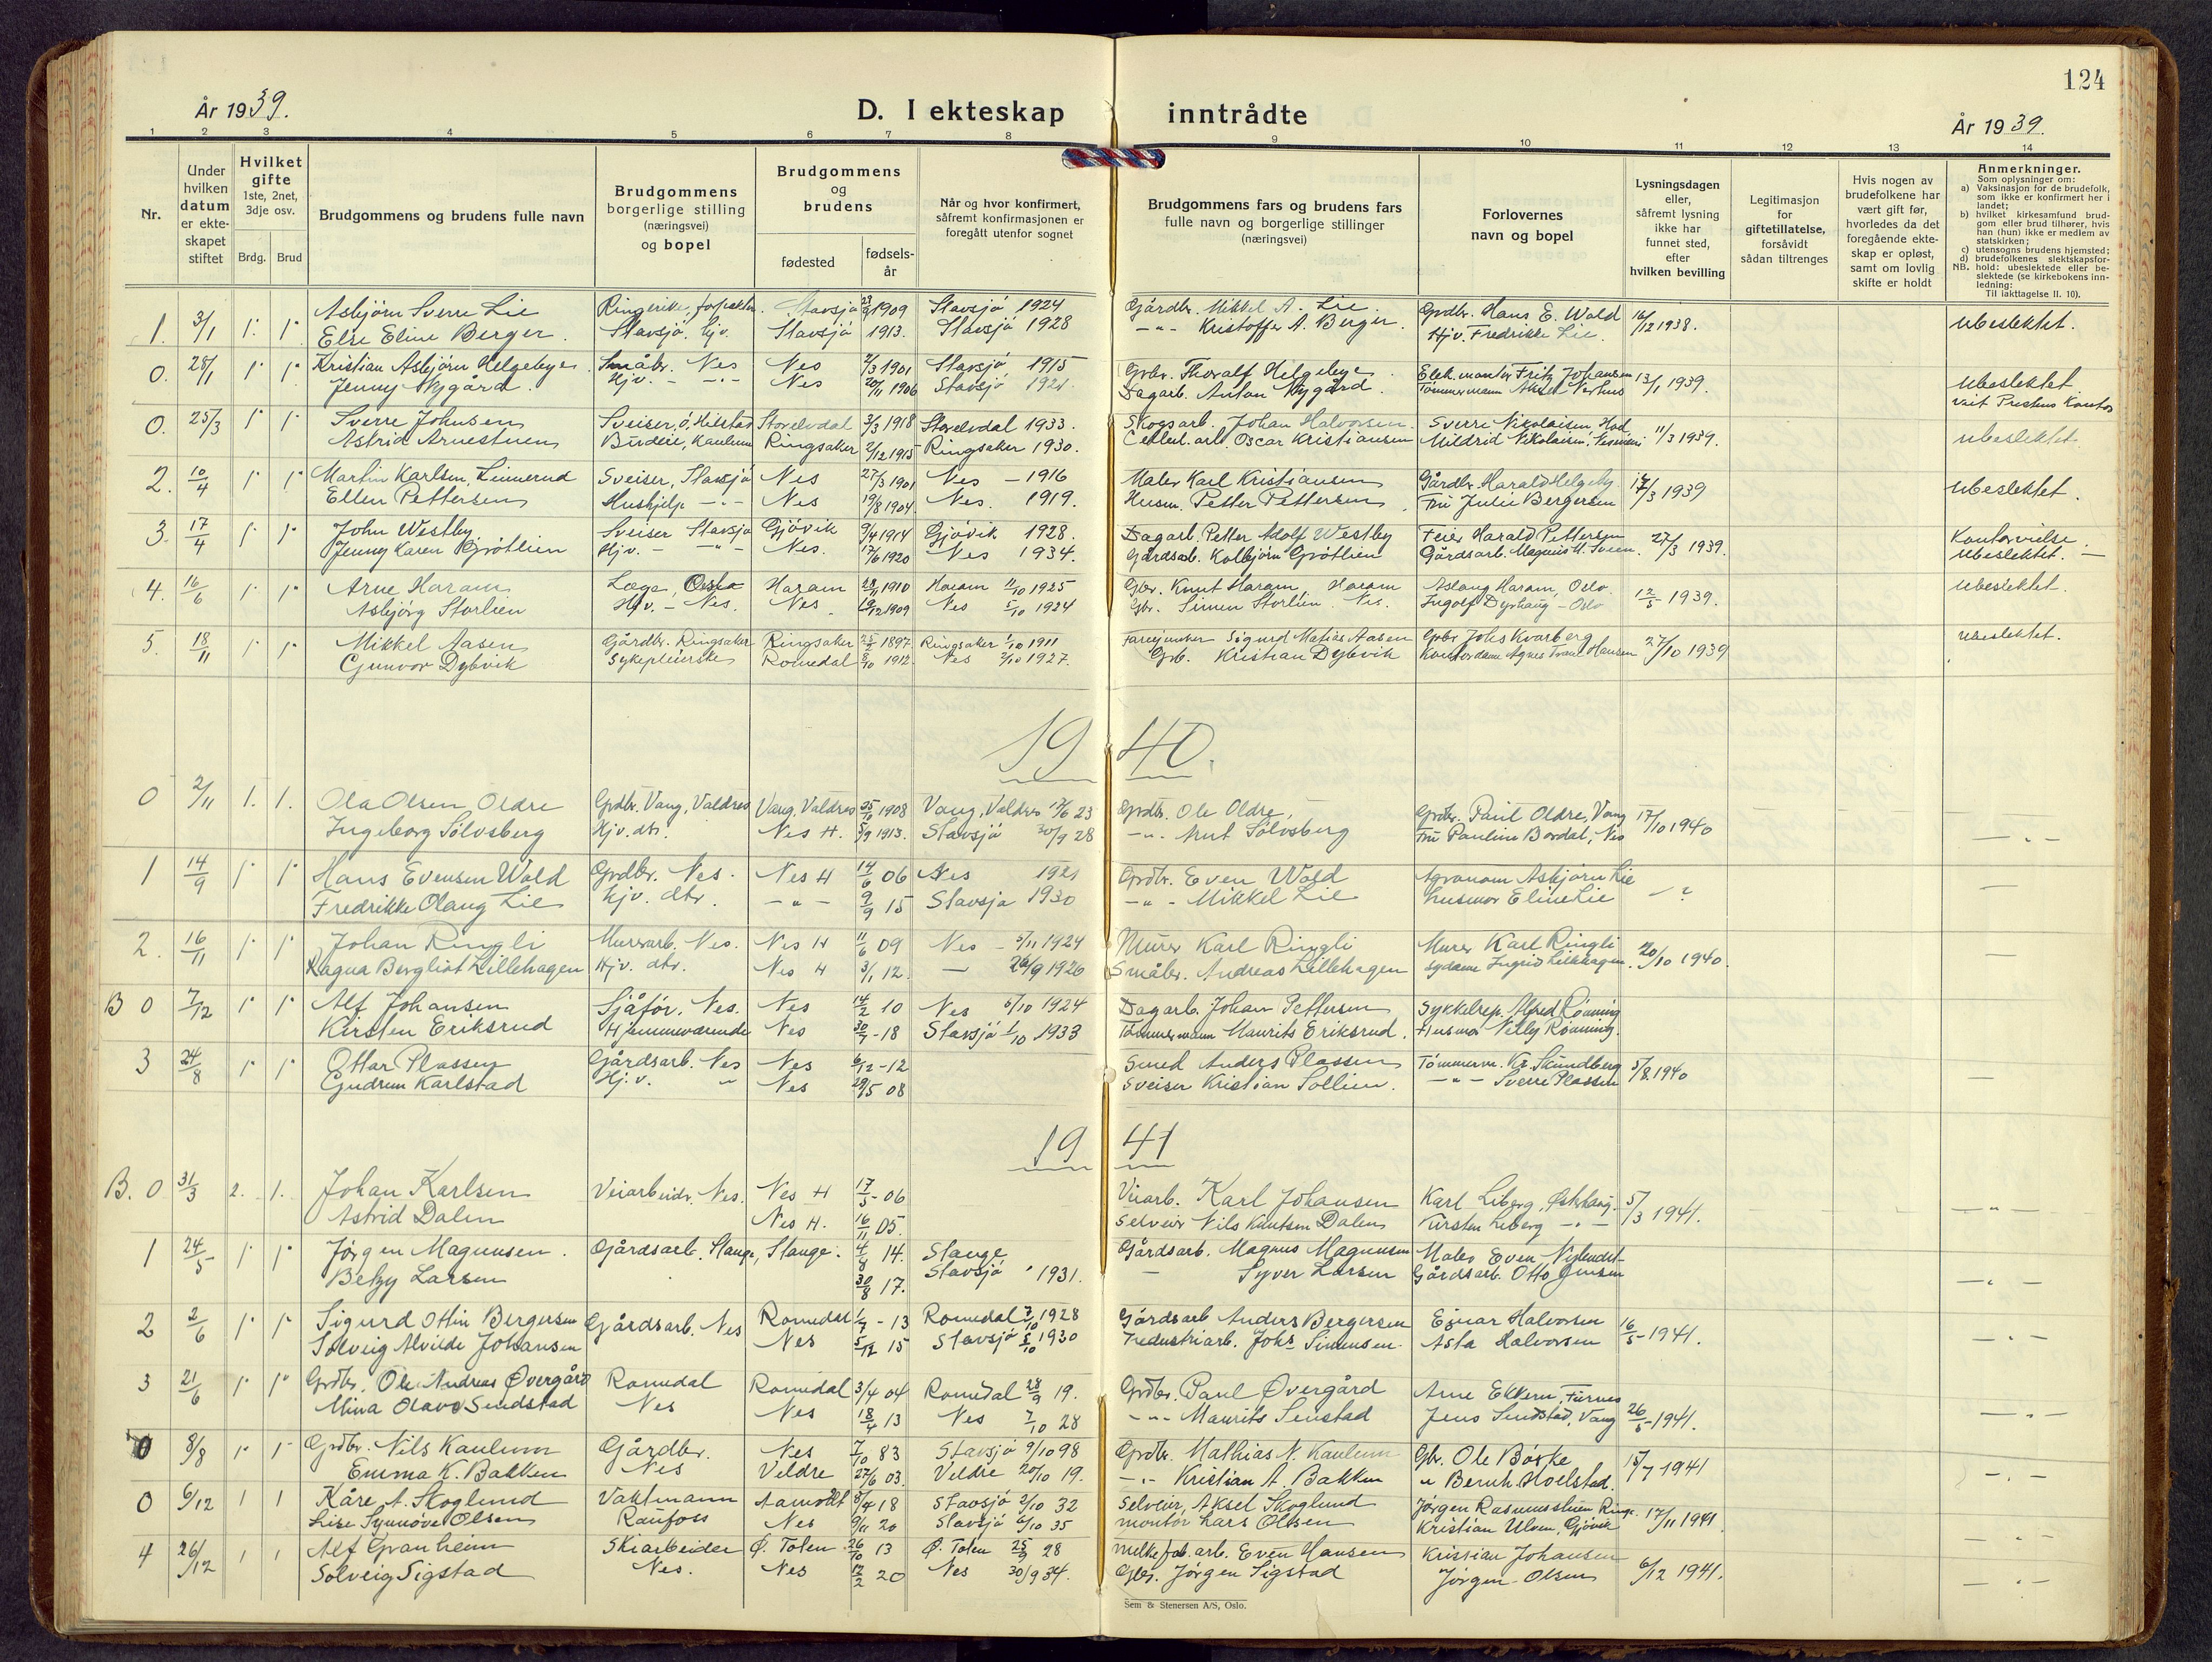 124
År 1939.
D. I ekteskap inntrådte
År 1939.
1 2 3 4 5 6 7 8 9 10 11 12 13 14
Nr.
Under hvilken datum er ekteskapet stiftet
Hvilket gifte 1ste, 2net, 3dje osv.
Brdg. Brud
Brudgommens og brudens fulle navn
Brudgommens borgerlige stilling (næringsvei) og bopel
Brudgommens og brudens
fødested
fødselsår
Når og hvor konfirmert, såfremt konfirmasjonen er foregått utenfor sognet
Brudgommens fars og brudens fars fulle navn og borgerlige stillinger (næringsvei)
Forlovernes navn og bopel
Lysningsdagen eller, såfremt lysning ikke har funnet sted, efter hvilken bevilling
Legitimasjon for giftetillatelse, forsåvidt sådan tiltrenges
Hvis nogen av brudefolkene har vært gift før, hvorledes da det foregående ekteskap er opløst, samt om lovlig skifte er holdt
Anmerkninger.
Som oplysninger om:
a) Vaksinasjon for de brudefolk, som ikke er konfirmert her i landet;
b) hvilket kirkesamfund brudgom eller brud tilhører, hvis han (hun) ikke er medlem av statskirken;
c) utensogns brudens hjemsted;
d) brudefolkenes slektskapsforhold: ubeslektede eller beslektede (se kirkebokens innledning:
NB. Til iakttagelse II. 10).
1. 3/1 1. 1. Asbjörn Sverre Lie Ringerike, Stavsjö 23/9 1909 Stavsjö 1924 Gårdbr. Mikkel A. Lie Grdbr. Hans E. Wold 16/12 1938. ubeslektet.
Else Eline Berger. Stavsjö, hjv. Stavsjö 1913. Stavsjö 1928 -"- Kristoffer A. Berger. Hjv. Fredrikke Lie.
0. 28/1 1 1 Kristian Asbjörn Helgebye. Småbr. Nes Nes 2/3 1901 Stavsjö 1915 Grbr. Thoralf Helgebye. Elek.montör Fritz Johansen 13/1 1939. ubeslektet
Jenny Nygård. Hjv. - -"- Nes 20/11 1906 Stavsjö 1921. Dagarb. Anton Nygård. Tömmermann Aksel Nerhus viet Prestens Kontor
0. 25/3 1 1 Sverre Johnsen Sveiser, Ö. Hilstad Storelvdal 3/3 1918 Storelvdal 1933. Skogsarb. Johan Halvorsen. Sverre Nikolaisen, 11/3 1939. ubeslektet.
Astrid Arnestuen Budeie, Kaulum Ringsaker 2/12 1915 Ringsaker 1930. Cellul.arb. Oscar Kristiansen Mildrid Nikolaisen,
2. 10/4 1 1 Martin Karlsen, Linnerud Sveiser, Stavsjö Nes 27/3 1901 Nes - 1916 Maler Karl Kristiansen Gårdbr. Harald Helgeby 14/3 1939 ubeslektet.
Ellen Pettersen Hushjelp -"- Nes 19/8 1904 Nes. 1919. Husm. Petter Pettersen Fru Julie Bergersen
3. 17/4 1 1 John Westby. Sveiser Stavsjö Gjövik 9/4 1914 Gjövik 1928. Dagarb. Petter Adolf Westby Feier Harald Pettersen 27/3 1939. Kontorvielse.
Jenny Karen Gröttlien Hjv. - -"- Nes. 17/6 1920 Nes 1934. Gårdsarb. Kolbjörn Gröttlien Gårdsarb. Magnus H. Sveen. ubeslektet. -
4. 16/6 1 1 Arne Haram Læge, Oslo Haram 28/11 1910 Haram 11/10 1925 Gbr. Knut Haram, Haram Aslaug Haram, Oslo 12/5 1939. ubeslektet.
Asbjörg Storlien Hjv. - Nes. Nes 19/12 1909 Nes 5/10 1924 Gbr. Simen Storlien Nes. Ingolf Dyrhaug - Oslo
5. 18/11 1 1 Mikkel Aasen Gårdbr. Ringsaker Ringsaker 25/5 1897 Ringsaker 1/10 1911 Sigurd Matias Aasen Grbr. Johs Kvarberg 27/10 1939 ubeslektet.
Gunvor Dybvik Sykepleierske Romedal 8/10 1912 Nes 2/10 1927. Grb. Kristian Dybvik Kontordame Agnes Hansen
1940.
0 2/11 1. 1. Ola Olsen Oldre Grdbr. Vang, Valdres Vang, Valdres 25/10 1908 Vang, Valdres 17/6 23 Grdbr. Ole Oldre, Grdbr. Paul Oldre, Vang 17/10 1940
Ingeborg Sölvsberg Hjv. dtr. Nes H. 5/9 1913. Stavsjö 30/9 28 -"- Knut Sölvsberg Fru Pauline Bordal, Nes - " -
1 14/9 1 1 Hans Evensen Wold Grdbr. Nes. Nes H 14/6 06 Nes 1921 Grdbr. Even Wold Agronom Asbjörn Lie - ? -
Fredrikke Olaug Lie Hjv. dtr. -"- 9/9 15 Stavsjö 1930 -"- Mikkel Lie husmor Eline Lie
2. 16/11 1 1 Johan Ringli Murerarb. Nes. Nes H 11/6 09 Nes - 5/11 1924 Murer Karl Ringli Murer Karl Ringli 20/10 1940. -
Ragna Bergliot Lillehagen Hjv. dtr. Nes H 3/1 12. - 26/9 1926 Småbr. Andreas Lillehagen sydame Ingrid Lillehagen.
B 0 7/12 1 1 Alf Johansen Sjåför. Nes. Nes 14/2 10 Nes 5/10 1924 Dagarb. Johan Pettersen Sykkelrep. Alfred Röning
Kirsten Eriksrud Hjemmeværende Nes 30/7 - 18 Stavsjö 1/10 1933 Tömmermann Maurits Eriksrud. Husmor Nelly Röning.
3 24/8 1 1 Ottar Plassen Gårdsarb. Nes Nes 6/12 - 12 Smed Anders Plassen Tömmerm. Kr. Skundberg 5/8. 1940 -
Gudrun Karlstad Hj.v. " Nes 29/5 08 Sveiser Kristian Sollien. -"- Sverre Plassen
1941
B. 0 31/3 2. 1. Johan Karlsen Veiarbeider Nes. Nes H 17/5 - 06 Veiarb. Karl Johansen Karl Liberg, 5/3 1941. - " -
Astrid Dalen Nes H. 16/11 05. Selveier Nils Knutsen Dalen Kirsten Liberg -"-
1 24/5 1 1 Jörgen Magnusen. Gårdsarb. Stange, Stange. 4/8 14. Stange Gårdsarb. Magnus Magnusen Maler Even Nylendet
Betzy Larsen 30/8 17. Stavsjö " 1931. - Syver Larsen Gårdsarb. Otto Jensen - " -
2 2/6 1 1 Sigurd Ottin Bergersen Gårdsarb. Nes Romedal 1/7 - 13 Romedal 7/10 1928 Gårdsarb Anders Bergersen Ejnar Halvorsen 16/5 - 1941. - " -
Solveig Alvilde Johansen Nes 5/12 15 Stavsjö 5/10 1930 Industriarb. Johs Simensen. Asta Halvorsen
3 21/6 1 1 Grdbr. Ole Andreas Övergård Romedal Romedal 3/4 04 Romedal 28/9 19. Grdbr. Paul Övergård Arne Ekkern, Furnes
Mina Olava Sendstad Nes Nes 18/4 13 Nes 7/10 28 -"- Maurits Senstad Jens Sendstad, Vang 26/5 - 1941. - " -
0 8/8 1 1 Grdbr. Nils Kaulum Gårdbr. Nes 7/10 83 Stavsjö 9/10 98 Grdbr. Mathias N. Kaulum Gbr. Ole Böske 15/7 1941
Emma K. Bakken Nes Veldre 27/6 03. Veldre 20/10 19. -"- Kristian A. Bakken " Bernh. Hoelstad. - " -
0 6/12 1 1 Kåre A. Skoglund Vaktmann Aamodt 8/4 18 Stavsjö 2/10 32 Selveier, Aksel Skoglund Jörgen Rasmusstuen Rings. 17/11 1941
Lise Synnöve Olsen Raufoss Nes 9/11 20 Stavsjö 6/10 35 montör Lars Olsen Kristian Ulven, Gjövik - " -
4 26/12 1 1 Alf Granheim Skiarbeider Ö. Toten 26/10 13 Ö. Toten 25/9 28 Melkefab.arb. Even Hansen Kristian Johansen 6/12 1941.
Solveig Sigstad Nes. Nes 12/2 20 Nes 30/9 34. Gbr. Jörgen Sigstad Jörgen Olsen - " -
Sem & Stenersen A/S, Oslo.